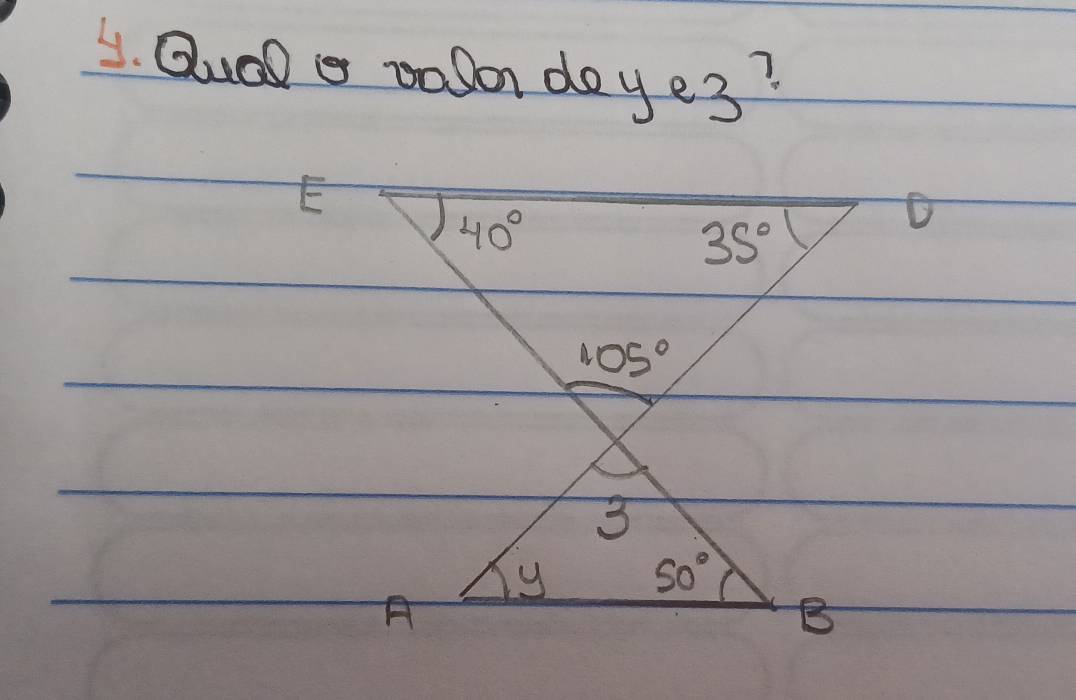 4. Qual o valor de y e z?
E D
40° 35°
105°
z
y 50°
A B